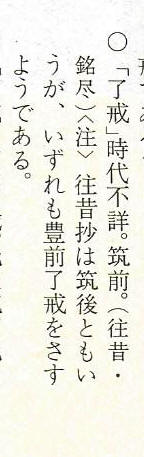 ○「了戒」時代不詳。筑前。（往昔・
銘尽）〈注〉往昔抄は筑後ともい
うが、いずれも豊前了戒をさす
ようである。